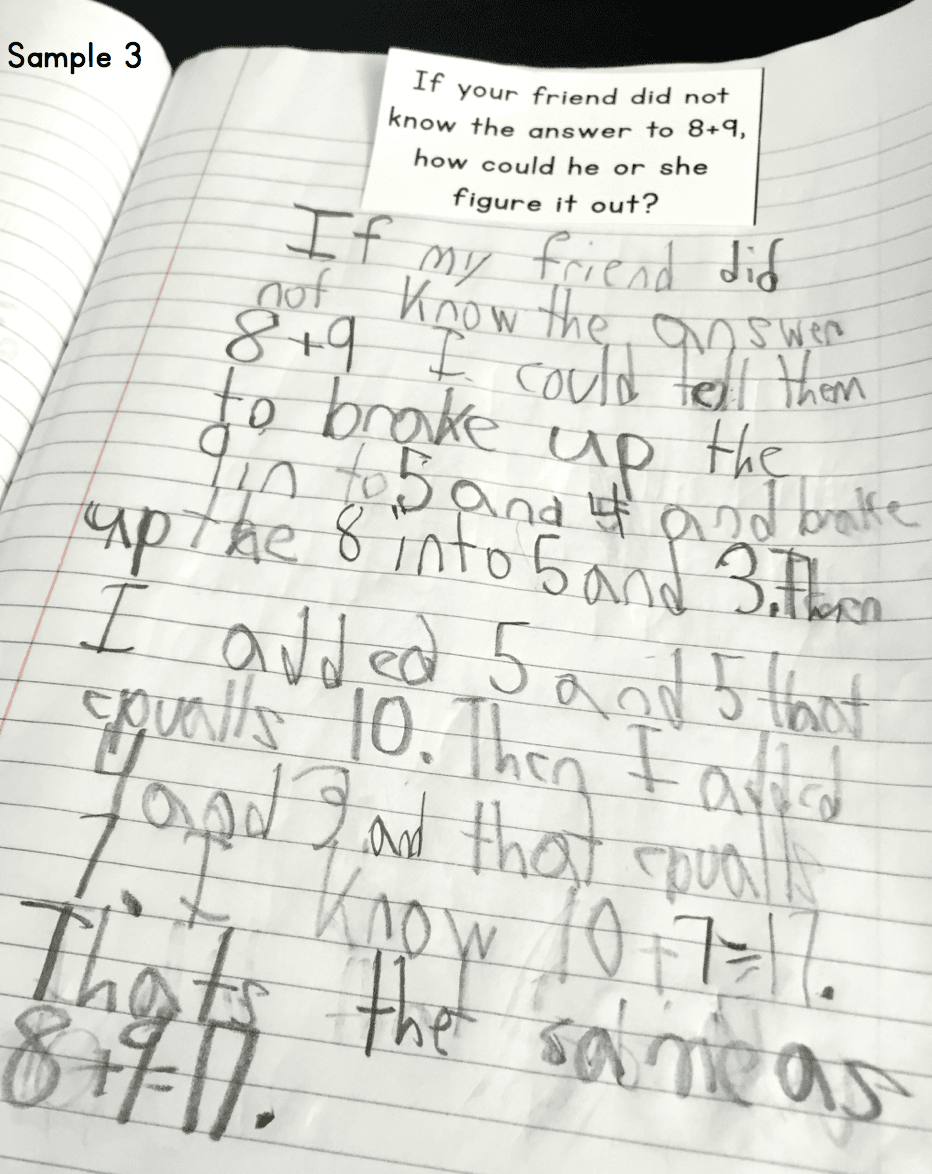 Sample 3
If your friend did not
know the answer to 8+9,
how could he or she
figure it out?
If my friend did
not know the answer
8+9 I could tell them
to brake up the
9 in to 5 and 4 and brake
up the 8 into 5 and 3. Then
I added 5 and 5 that
equalls 10. Then I added
4 and 3 and that equalls
7. I know 10+7=17.
Thats the same as
8+9=17.